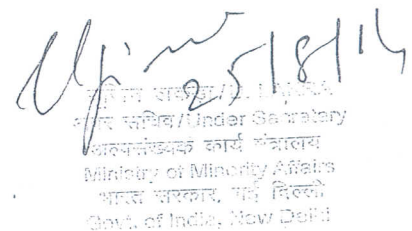 25/8/14
अवर सचिव/Under Secretary
अल्पसंख्यक कार्य मंत्रालय
Ministry of Minority Affairs
भारत सरकार, नई दिल्ली
Govt. of India, New Delhi